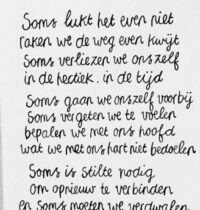 Soms lukt het even niet
raken we de weg even kwijt
Soms verliezen we onszelf
in de hectiek.. in de tijd
Soms gaan we onszelf voorbij
Soms vergeten we te voelen
bepalen we met ons hoofd
wat we met ons hart niet bedoelen
Soms is stilte nodig
om opnieuw te verbinden
en soms moeten we verdwalen